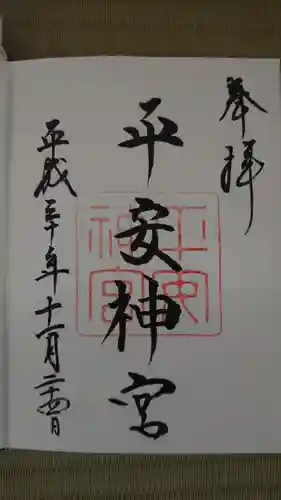 奉拝
平安神宮
平安
神宮
平成三十年十一月二十四日